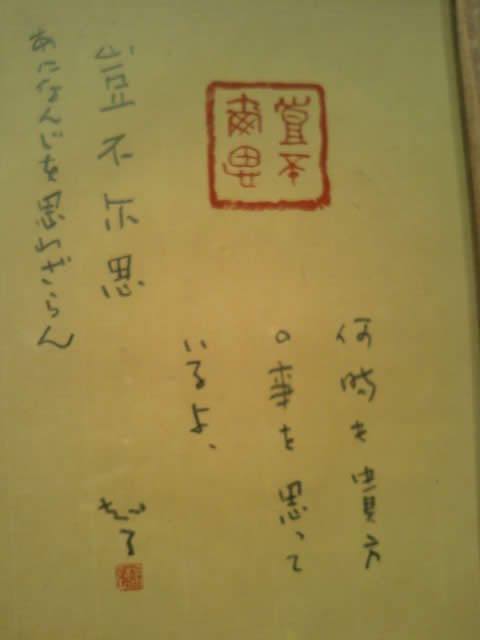 豈不
爾思
何時も貴方
の事を思って
いるよ、
豈不尓思
あになんじを思わざらん